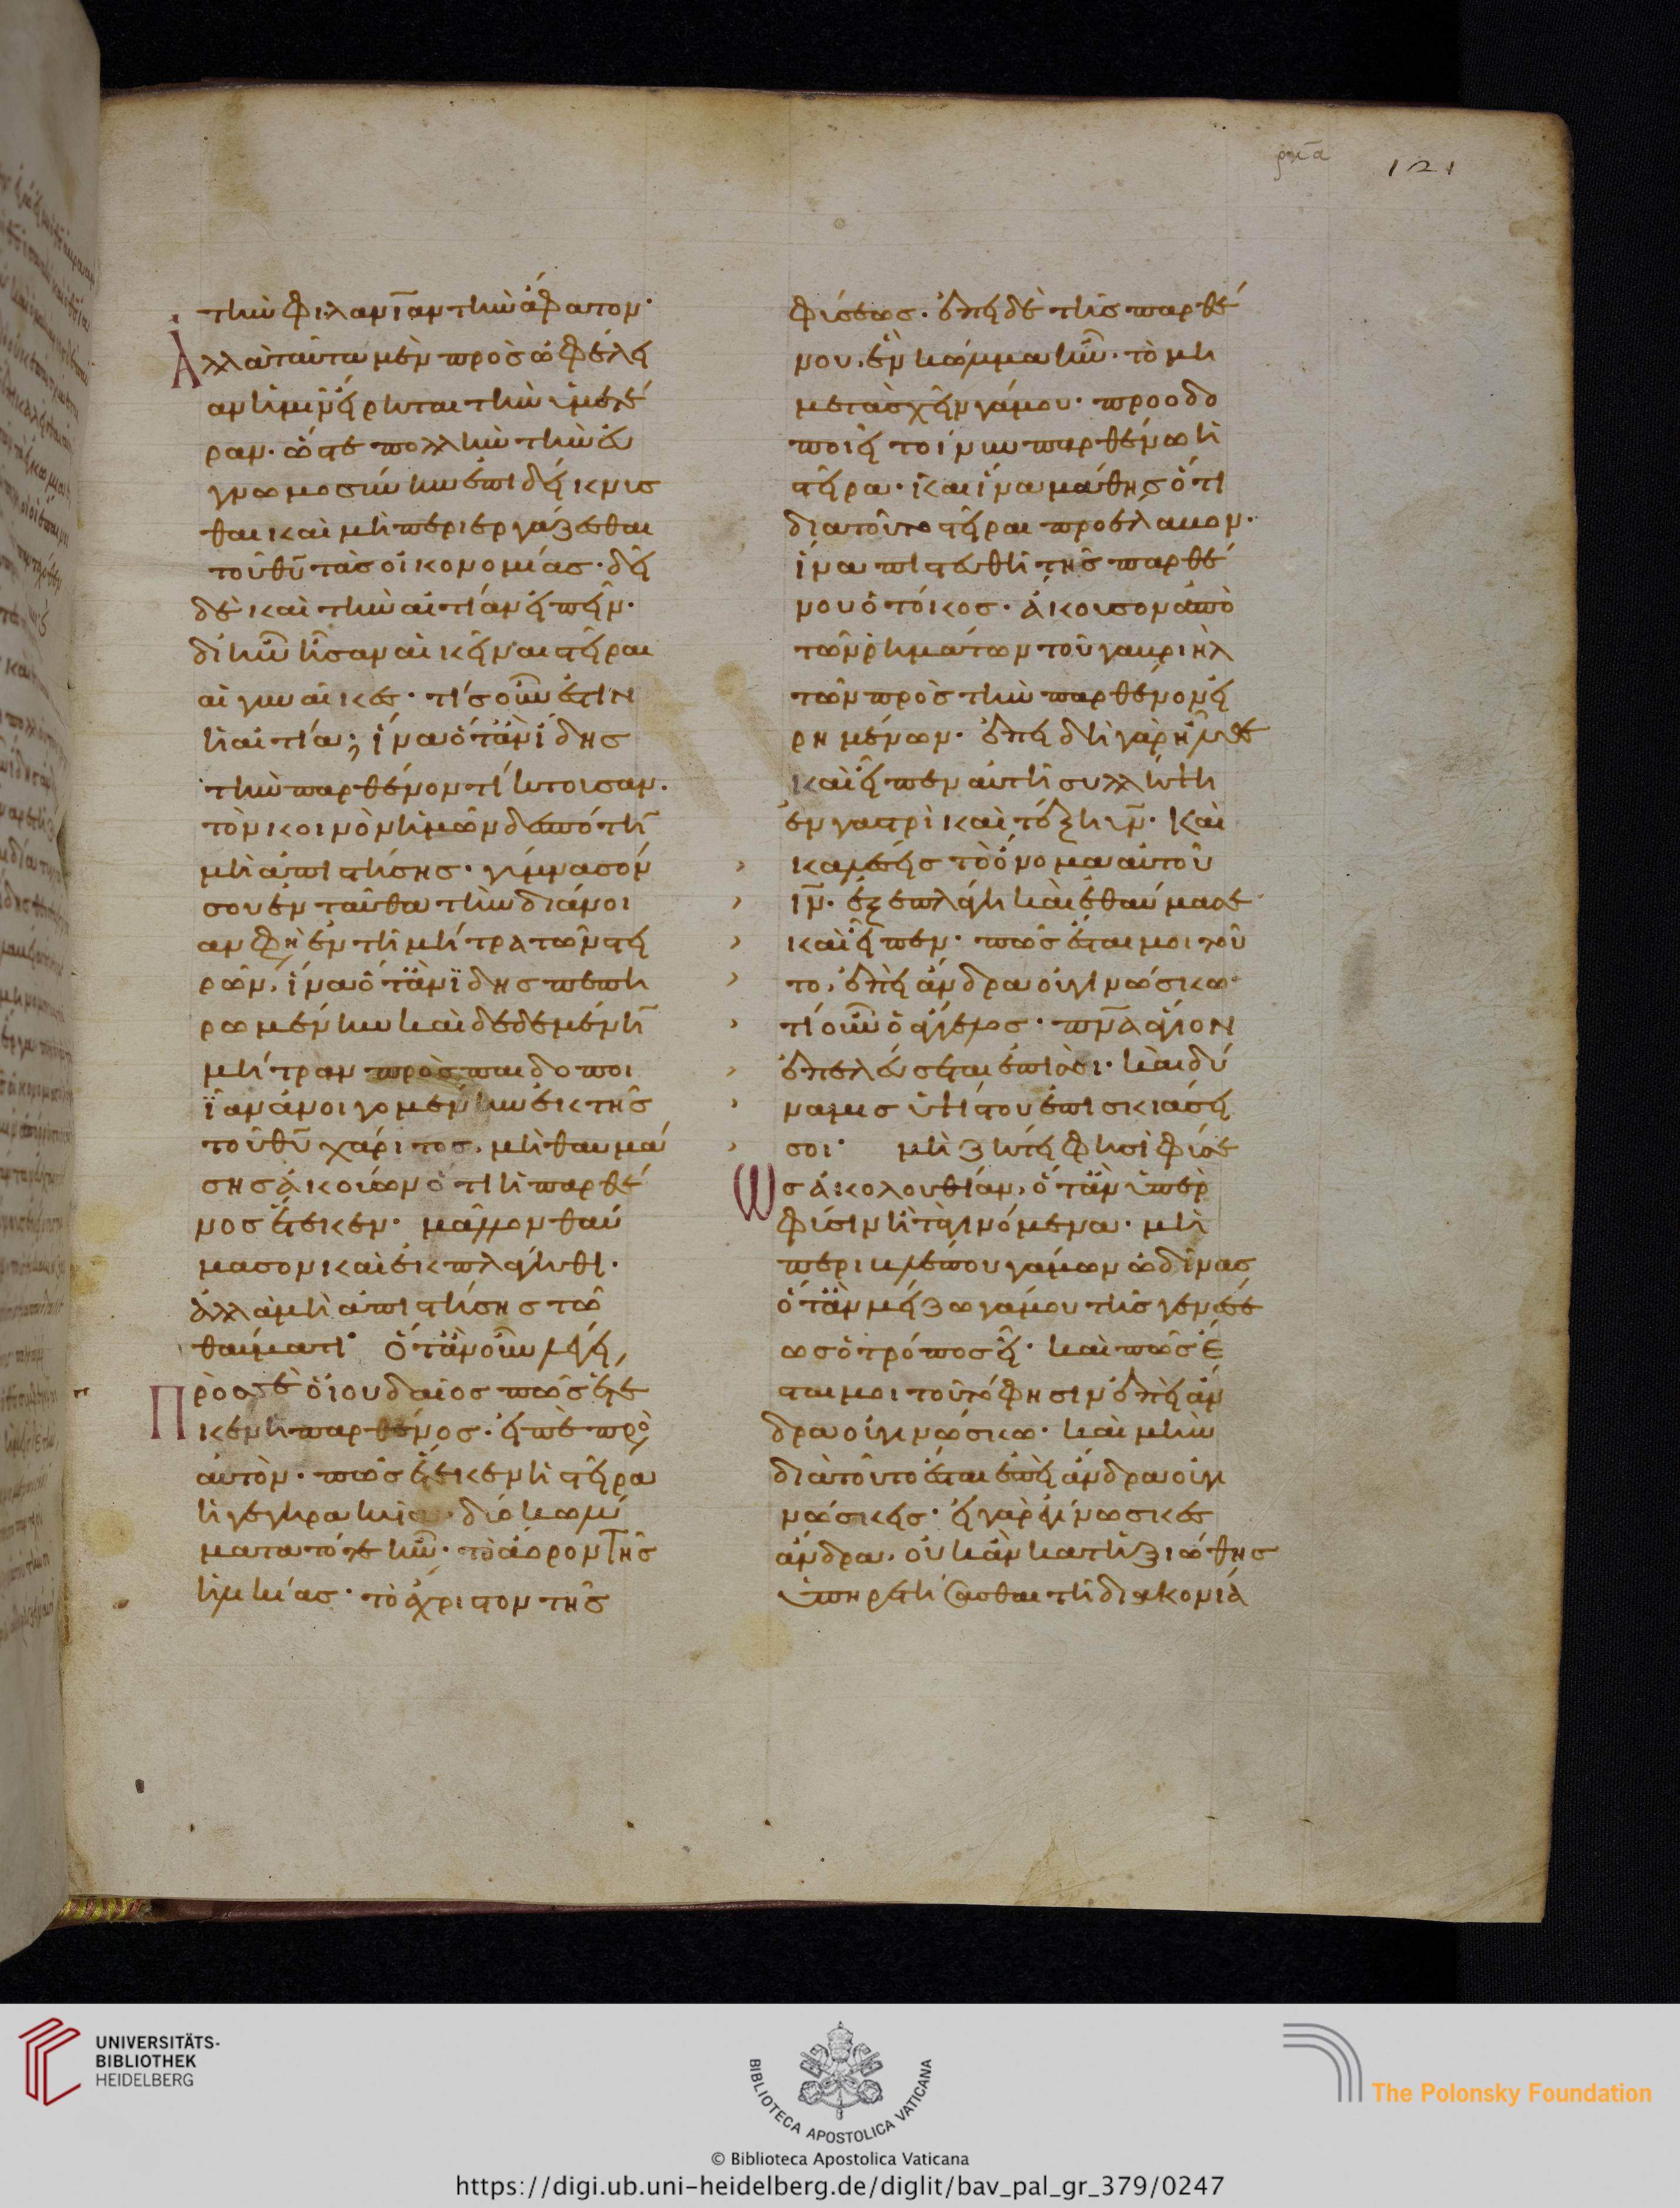 ρκα 121
τὴν φιλανιαν τὴν ἄφατον·
Ἀλλὰ ταῦτα μὲν πρὸς ὠφέλει
αν ἡμῖν εἴρηται τὴν ὑμετέ
ραν· ὥστε πολλὴν τὴν εὐ
γνωμοσύνην ἐπιδείκνυσ
θαι καὶ μὴ περιεργάζεσθαι
τοῦ θυ τὰς οἰκονομίας· δεῖ
δὲ καὶ τὴν αἰτίαν εἰπεῖν·
δι ἣν ἦσαν αἱ κεῖναι στεῖραι
αἱ γυναῖκες· τίς οὖν ἐστὶν
ἡ αἰτία; ἵνα ὅταν ἴδης
τὴν παρθένον τίκτουσαν·
τὸν κοινὸν ἡμῶν δεσπότην
μὴ ἀπιστήσης· γύμνασόν
σου ἐνταῦθα τὴν διάνοι
αν φη ἐν τῆ μήτρα τῶν στει
ρῶν, ἵνα ὅταν ἴδης πεπη
ρωμένην καὶ δεδεμένην
μήτραν πρὸς παιδοποι
ΐαν ἀνοιγομένην ἐκ τῆς
τοῦ θυ χάριτος, μὴ θαυμά
σης ἀκούων ὅτι ἡ παρθέ
νος ἔτεκεν· μᾶλλον θαύ
μασον καὶ ἐκπλάγηθι·
ἀλλὰ μὴ ἀπιστήσης τῶ
θαύματι· Ὅταν οὖν λέγη
Πρὸς σὲ ὁ ἰουδαῖος πῶς ἔτε
κεν ἡ παρθένος· εἰπὲ πρὸς
αὐτὸν· πῶς ἔτεκεν ἡ στεῖρα
ἡ γεγηρακυῖα· δύο κωλύ
ματα τότε ἦν· τὸ ἄωρον τῆς
ἡλικίας· τὸ ἄχρηστον τῆς
φύσεως· ἐπὶ δὲ τῆς παρθέ
νου, ἓν κώλυμα ἦν· τὸ μὴ
μετασχεῖν γάμου· προοδο
ποιεῖ τοίνυν παρθένω ἡ
στεῖρα· καὶ ἵνα μάθης ὅτι
διατοῦτο στεῖραι προέλαβον·
ἵνα πιστευθῆ τῆς παρθέ
νου ὁ τόκος· ἄκουσον ἀπὸ
τῶν ῥημάτων τοῦ γαβριὴλ
τῶν πρὸς τὴν παρθένον εἰ
ρημένων· ἐπειδὴ γὰρ ἦλθε
καὶ εἶπεν αὐτῆ συλλήψη
ἐν γαστρὶ καὶ τέξη υν· Καὶ
καλέσεις τὸ ὄνομα αὐτοῦ
ιν· ἐξεπλάγη καὶ ἐθαύμασε
καὶ εἶπεν· πῶς ἔσται μοι τοῦ
το, ἐπεὶ ἄνδρα οὐ γινώσκω·
τί οὖν ὁ ἄγγελος· πνα ἅγιον
ἐπελεύσεται ἐπὶ σὲ· καὶ δύ
ναμις ὑψίστου ἐπισκιάσει
σοι· μὴ ζήτει φησὶ φύσε
Ὡς ἀκολουθίαν, ὅταν ὑπὲρ
φύσιν ἦ τὰ γινόμενα· μὴ
περιβλέπου γάμων ὠδῖνας
ὅταν μείζω γάμου τῆς γενέσε
ως ὁ τρόπος ἦ· καὶ πῶς ἔ
σται μοι τοῦτό φησιν ἐπεὶ ἄν
δρα οὐ γινώσκω· καὶ μὴν
διὰ τοῦτο ἔσται ἐπεὶ ἄνδρα οὐ γι
νώσκεις· εἰ γὰρ ἐγίνωσκες
ἄνδρα, οὐκ ἂν κατηξιώθης
ὑπηρετήσασθαι τῆ διακονία
UNIVERSITÄTS-
BIBLIOTHEK
HEIDELBERG
BIBLIOTECA APOSTOLICA VATICANA
The Polonsky Foundation
© Biblioteca Apostolica Vaticana
https://digi.ub.uni-heidelberg.de/diglit/bav_pal_gr_379/0247